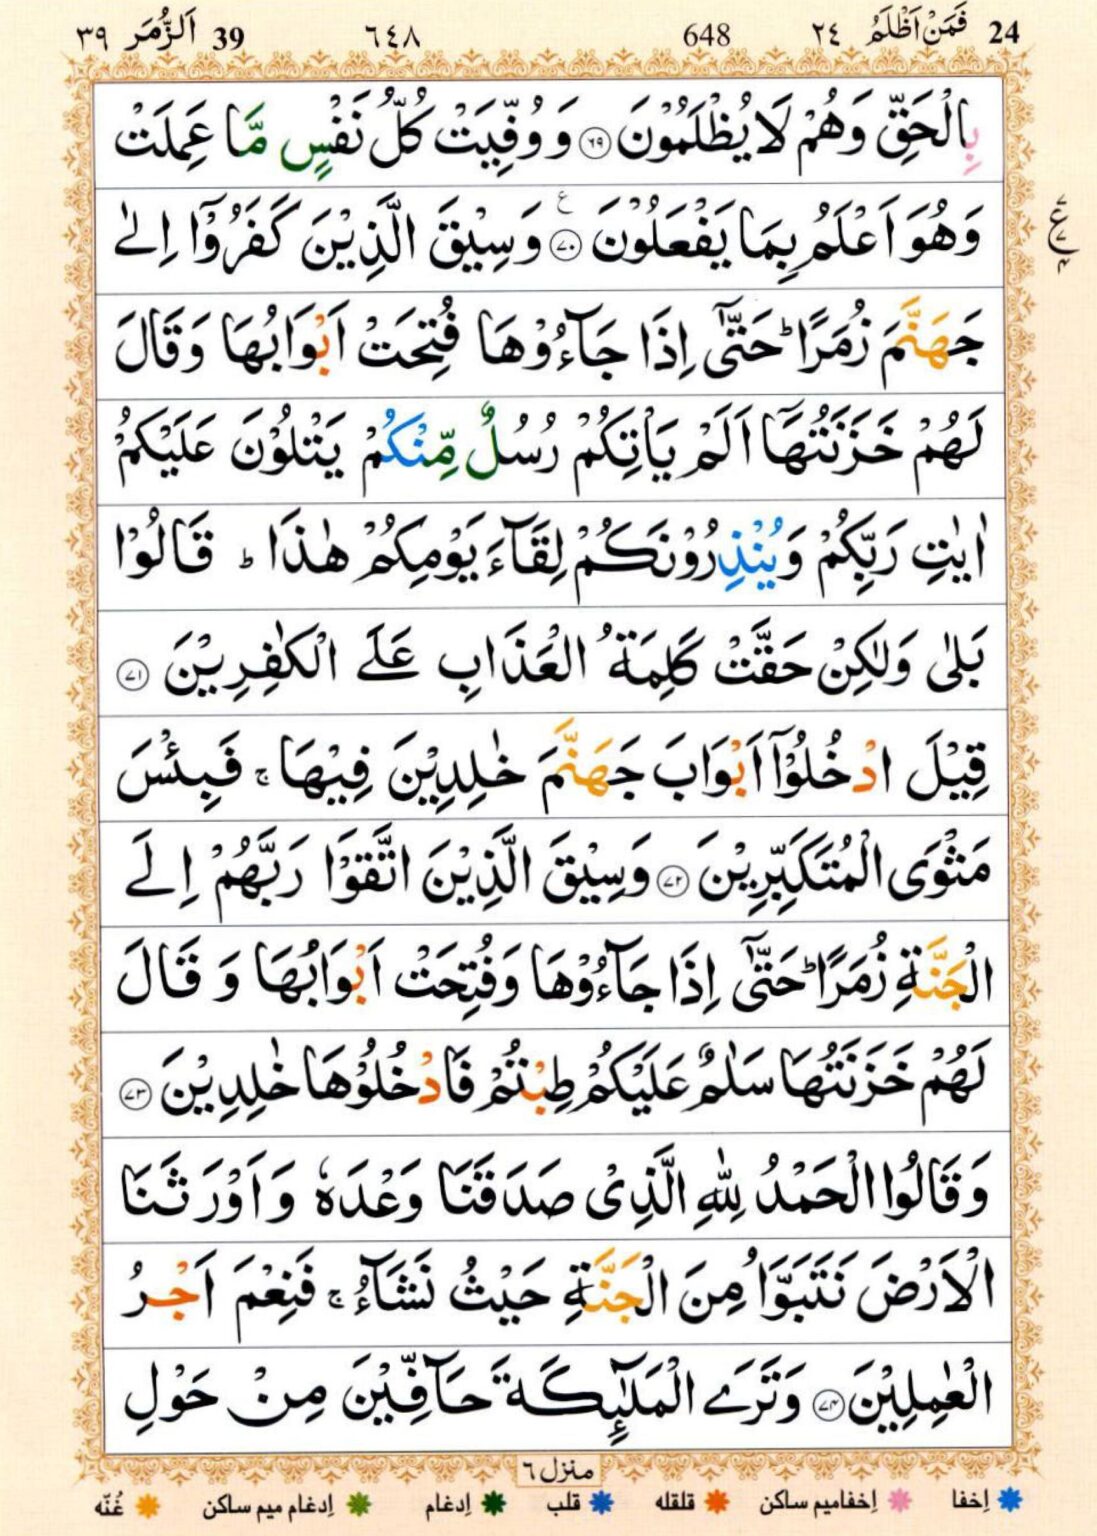 24 فَمَنْ اَظْلَمُ ٢٤ 648 ٦٤٨ 39 اَلزُّمَر ٣٩
بِالْحَقِّ وَهُمْ لَا يُظْلَمُوْنَ ۶۹ وَوُفِّيَتْ كُلُّ نَفْسٍ مَّا عَمِلَتْ
وَهُوَ اَعْلَمُ بِمَا يَفْعَلُوْنَ ع ۷۰ وَسِيْقَ الَّذِيْنَ كَفَرُوْۤا اِلٰى
ع ۷ ۷ ۴
جَهَنَّمَ زُمَرًاؕ حَتّٰۤى اِذَا جَآءُوْهَا فُتِحَتْ اَبْوَابُهَا وَقَالَ
لَهُمْ خَزَنَتُهَاۤ اَلَمْ يَاْتِكُمْ رُسُلٌ مِّنْكُمْ يَتْلُوْنَ عَلَيْكُمْ
اٰيٰتِ رَبِّكُمْ وَيُنْذِرُوْنَكُمْ لِقَآءَ يَوْمِكُمْ هٰذَا ؕ قَالُوْا
بَلٰى وَلٰكِنْ حَقَّتْ كَلِمَةُ الْعَذَابِ عَلَى الْكٰفِرِيْنَ ۷۱
قِيْلَ ادْخُلُوْۤا اَبْوَابَ جَهَنَّمَ خٰلِدِيْنَ فِيْهَا ۚ فَبِئْسَ
مَثْوَى الْمُتَكَبِّرِيْنَ ۷۲ وَسِيْقَ الَّذِيْنَ اتَّقَوْا رَبَّهُمْ اِلَى
الْجَنَّةِ زُمَرًاؕ حَتّٰۤى اِذَا جَآءُوْهَا وَفُتِحَتْ اَبْوَابُهَا وَقَالَ
لَهُمْ خَزَنَتُهَا سَلٰمٌ عَلَيْكُمْ طِبْتُمْ فَادْخُلُوْهَا خٰلِدِيْنَ ۷۳
وَقَالُوا الْحَمْدُ لِلّٰهِ الَّذِىْ صَدَقَنَا وَعْدَهٗ وَاَوْرَثَنَا
الْاَرْضَ نَتَبَوَّاُ مِنَ الْجَنَّةِ حَيْثُ نَشَآءُ ۚ فَنِعْمَ اَجْرُ
الْعٰمِلِيْنَ ۷۴ وَتَرَى الْمَلٰٓئِكَةَ حَآفِّيْنَ مِنْ حَوْلِ
منزل ٦
اِخفا اِخفامیم ساکن قلقله قلب اِدغام اِدغام میم ساکن غُنّه